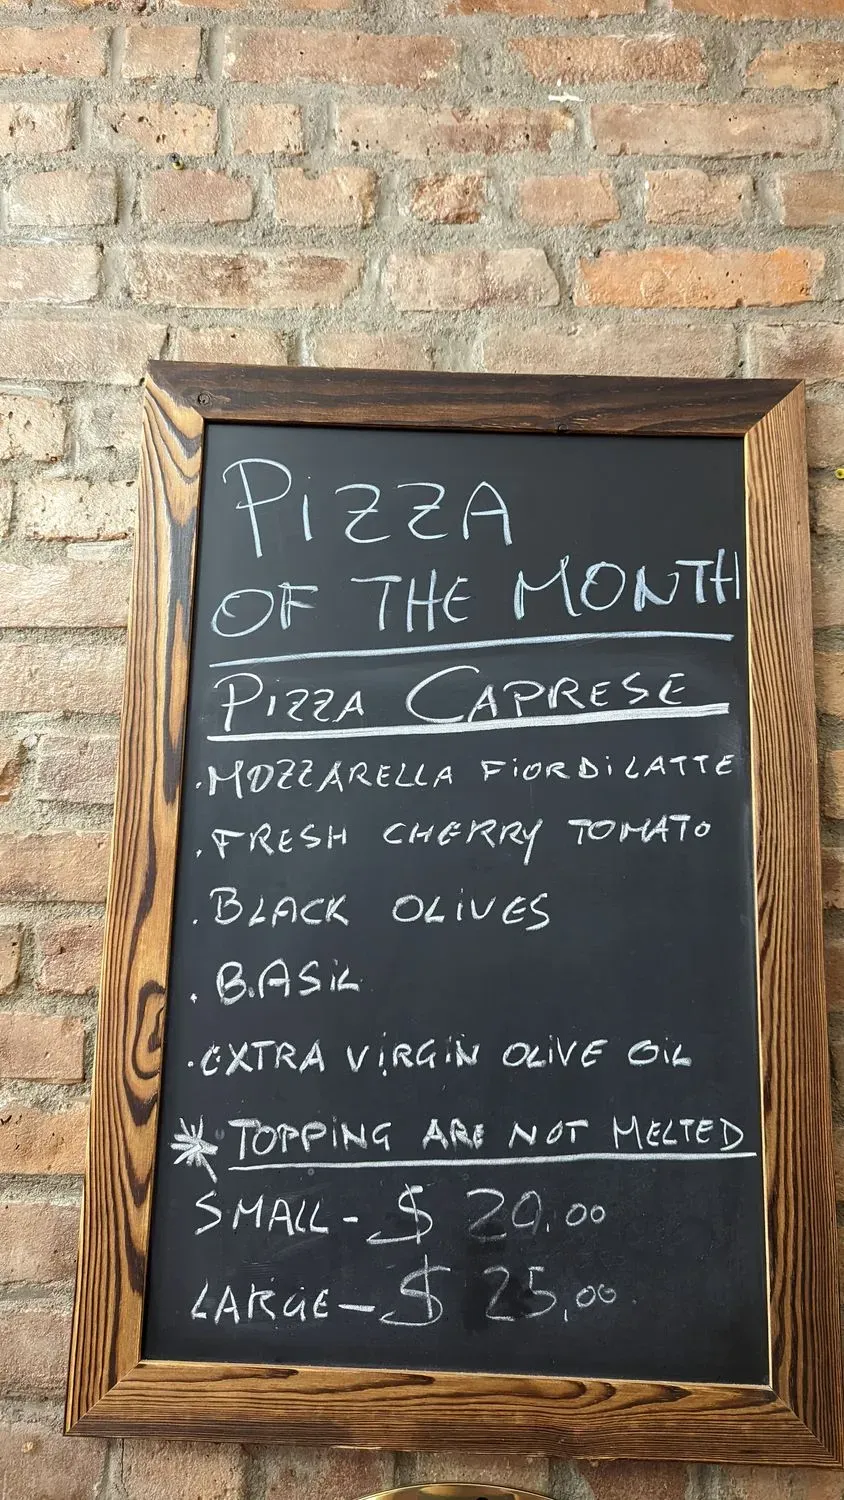 PIZZA
OF THE MONTH
PIZZA CAPRESE
.MOZZARELLA FIORDILATTE
.FRESH CHERRY TOMATO
.BLACK OLIVES
.BASIL
.EXTRA VIRGIN OLIVE OIL
* TOPPING ARE NOT MELTED
SMALL - $ 20.00
LARGE - $ 25,00